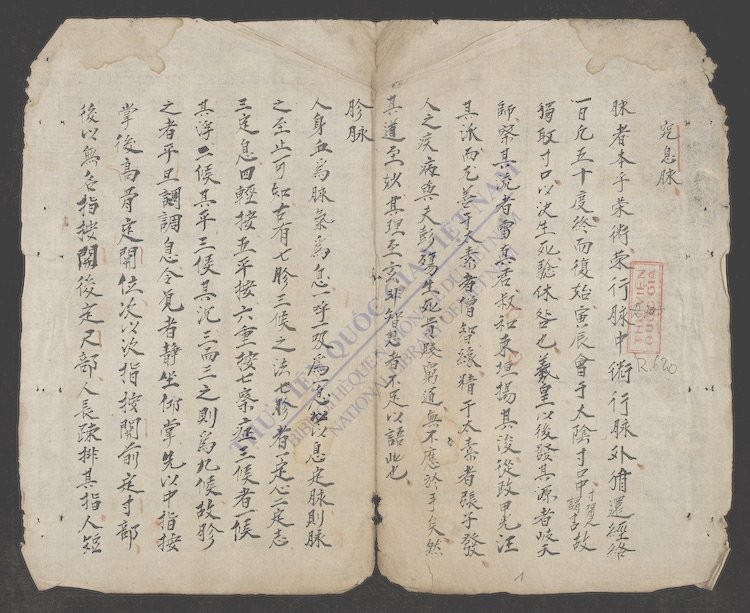 究息脉
脉者本乎荣術荣行脉中術行脉外循还經絡
一日凢五十度終而復始寅辰會于太陰寸口中故
獨取寸口以决生死驗休咎也羲皇以後發其源者岐天
師察其流者雷真君叔和
其派而已善于太素者僧智緣猜于太素者張子發
人之疾病與夫彭殤生死貴賤窮通無不應於手矣然
其道至妙其理至玄非智慧者不足以語此也
胗脉
人身血爲脉氣爲息一呼一吸爲一息以息定脉則脉
之至止可知古有七胗三候之法七胗者一定心二定志
三定息四輕按五平按六重按七察症三候者一候
其浮二候其平三候其沉三而三之則爲九候故胗
之者平旦調調息令覓者静坐仰掌先以中指按
掌後高骨定関位次以次指按関前定寸部
後以無名指按関後定尺部人長疎排其指人短
THƯ VIỆN QUỐC GIA VIỆT NAM
BIBLIOTHÈQUE NATIONALE DU VIETNAM
NATIONAL LIBRARY OF VIETNAM
THU VIEN
QUOC GIA
R.620
1